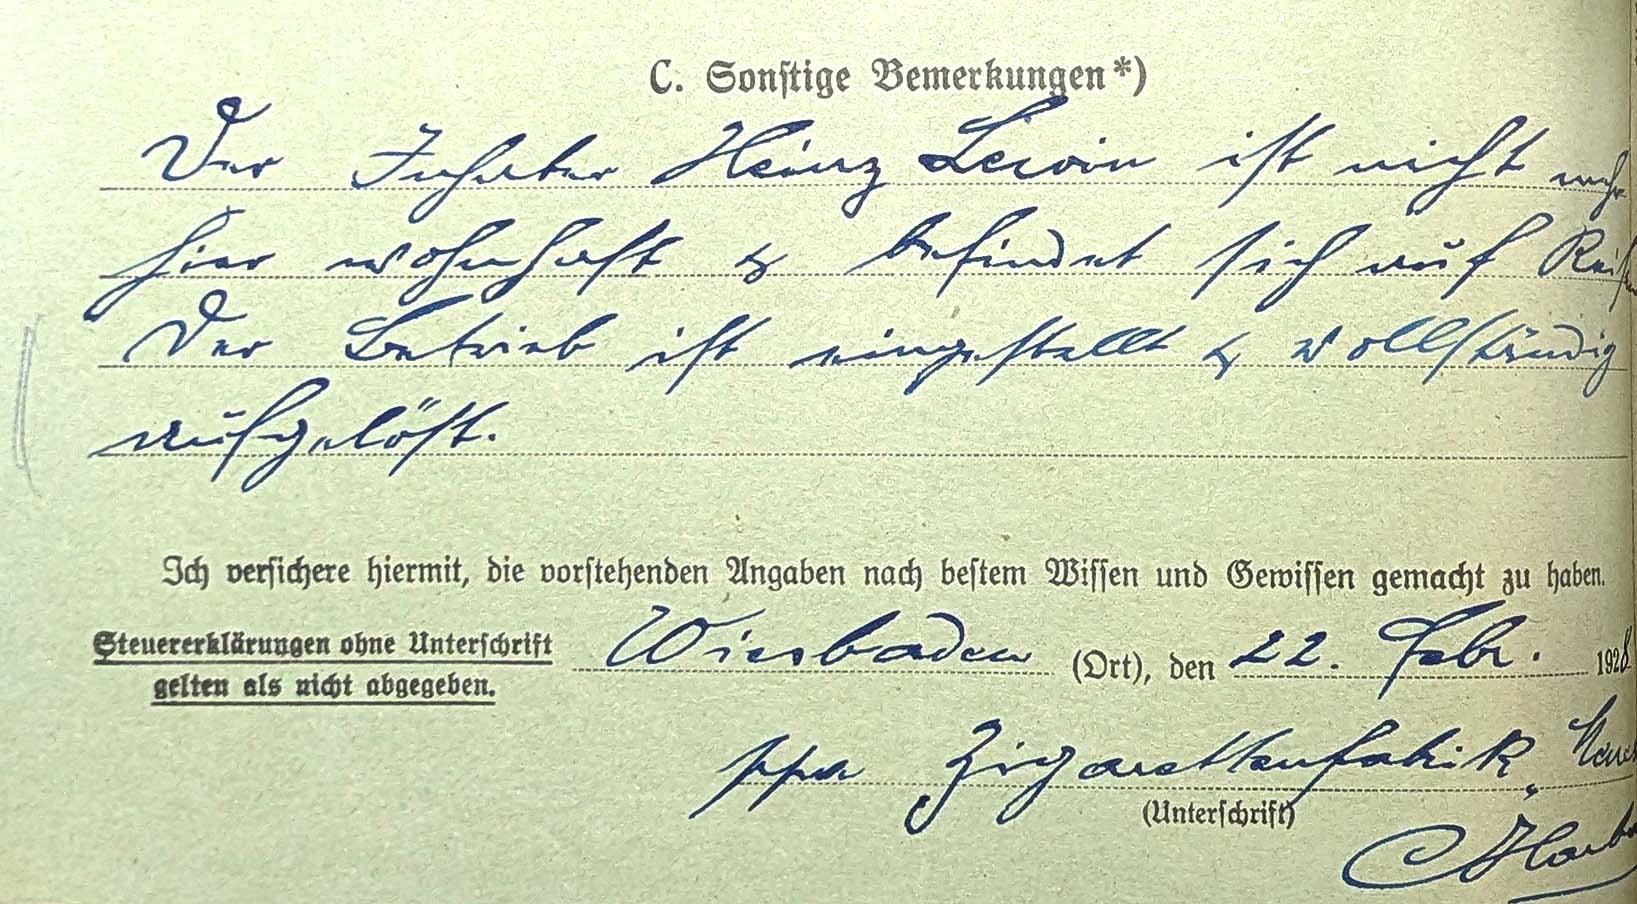 C. Sonstige Bemerkungen*)
Der Inhaber Heinz Lewin ist nicht mehr
hier wohnhaft & befindet sich auf Reisen
Der Betrieb ist eingestellt & vollständig
aufgelöst.
Ich versichere hiermit, die vorstehenden Angaben nach bestem Wissen und Gewissen gemacht zu haben.
Steuererklärungen ohne Unterschrift
gelten als nicht abgegeben.
Wiesbaden (Ort), den 22. Febr. 1928
ppa Zigarettenfabrik
(Unterschrift)